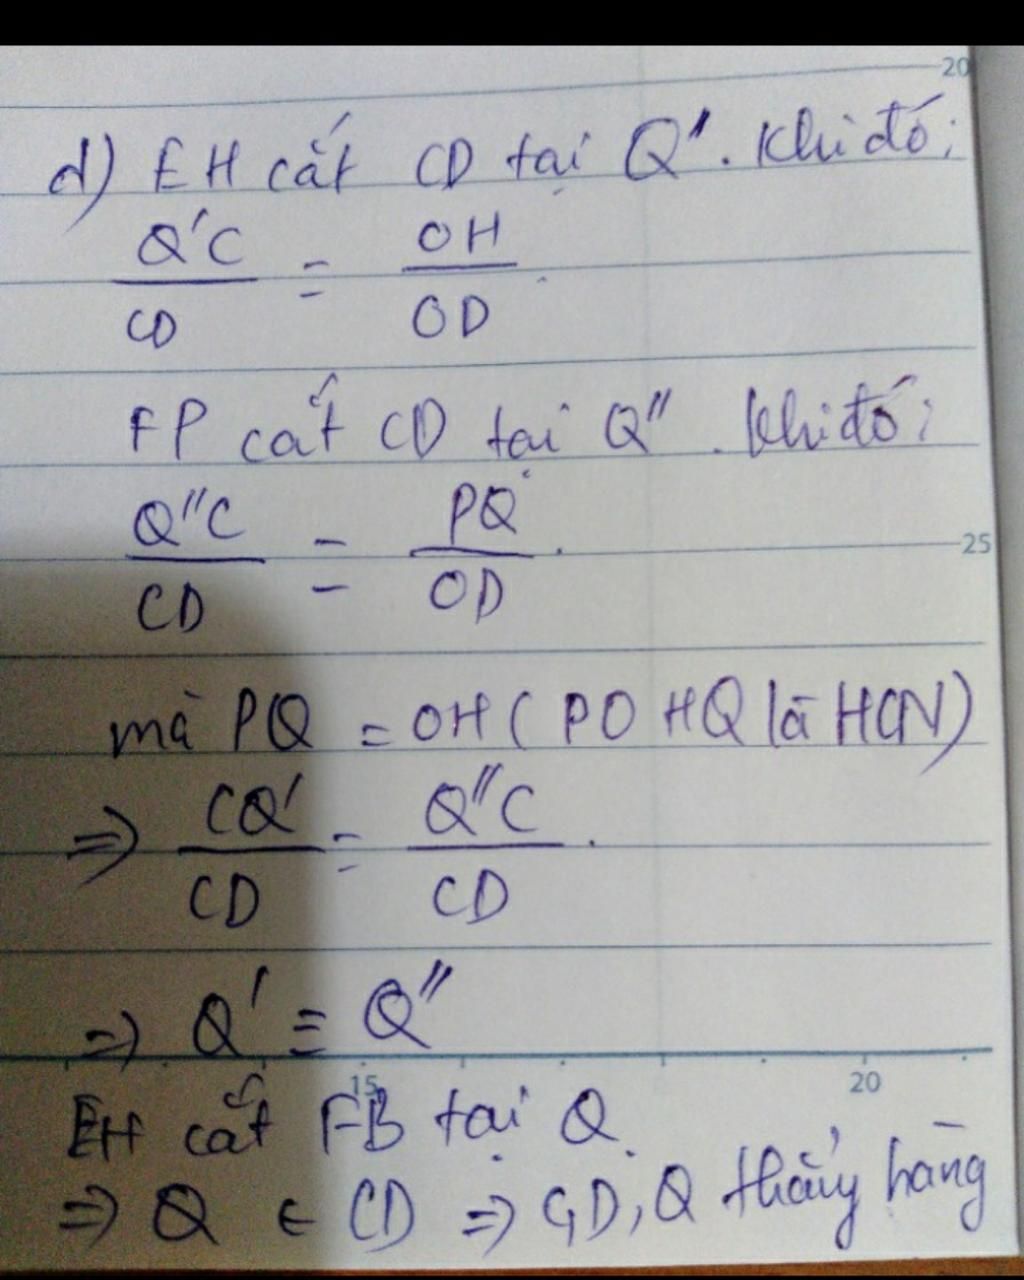 20
d) EH cắt CD tại Q'. Khi đó:
Q'C / CD = OH / OD.
FP cắt CD tại Q''. Khi đó:
Q''C / CD = PQ / OD.
25
mà PQ = OH ( POHQ là HCN)
=> CQ' / CD = Q''C / CD.
=> Q' ≡ Q''
15 20
EH cắt FB tại Q.
=> Q ∈ CD => C,D,Q thẳng hàng